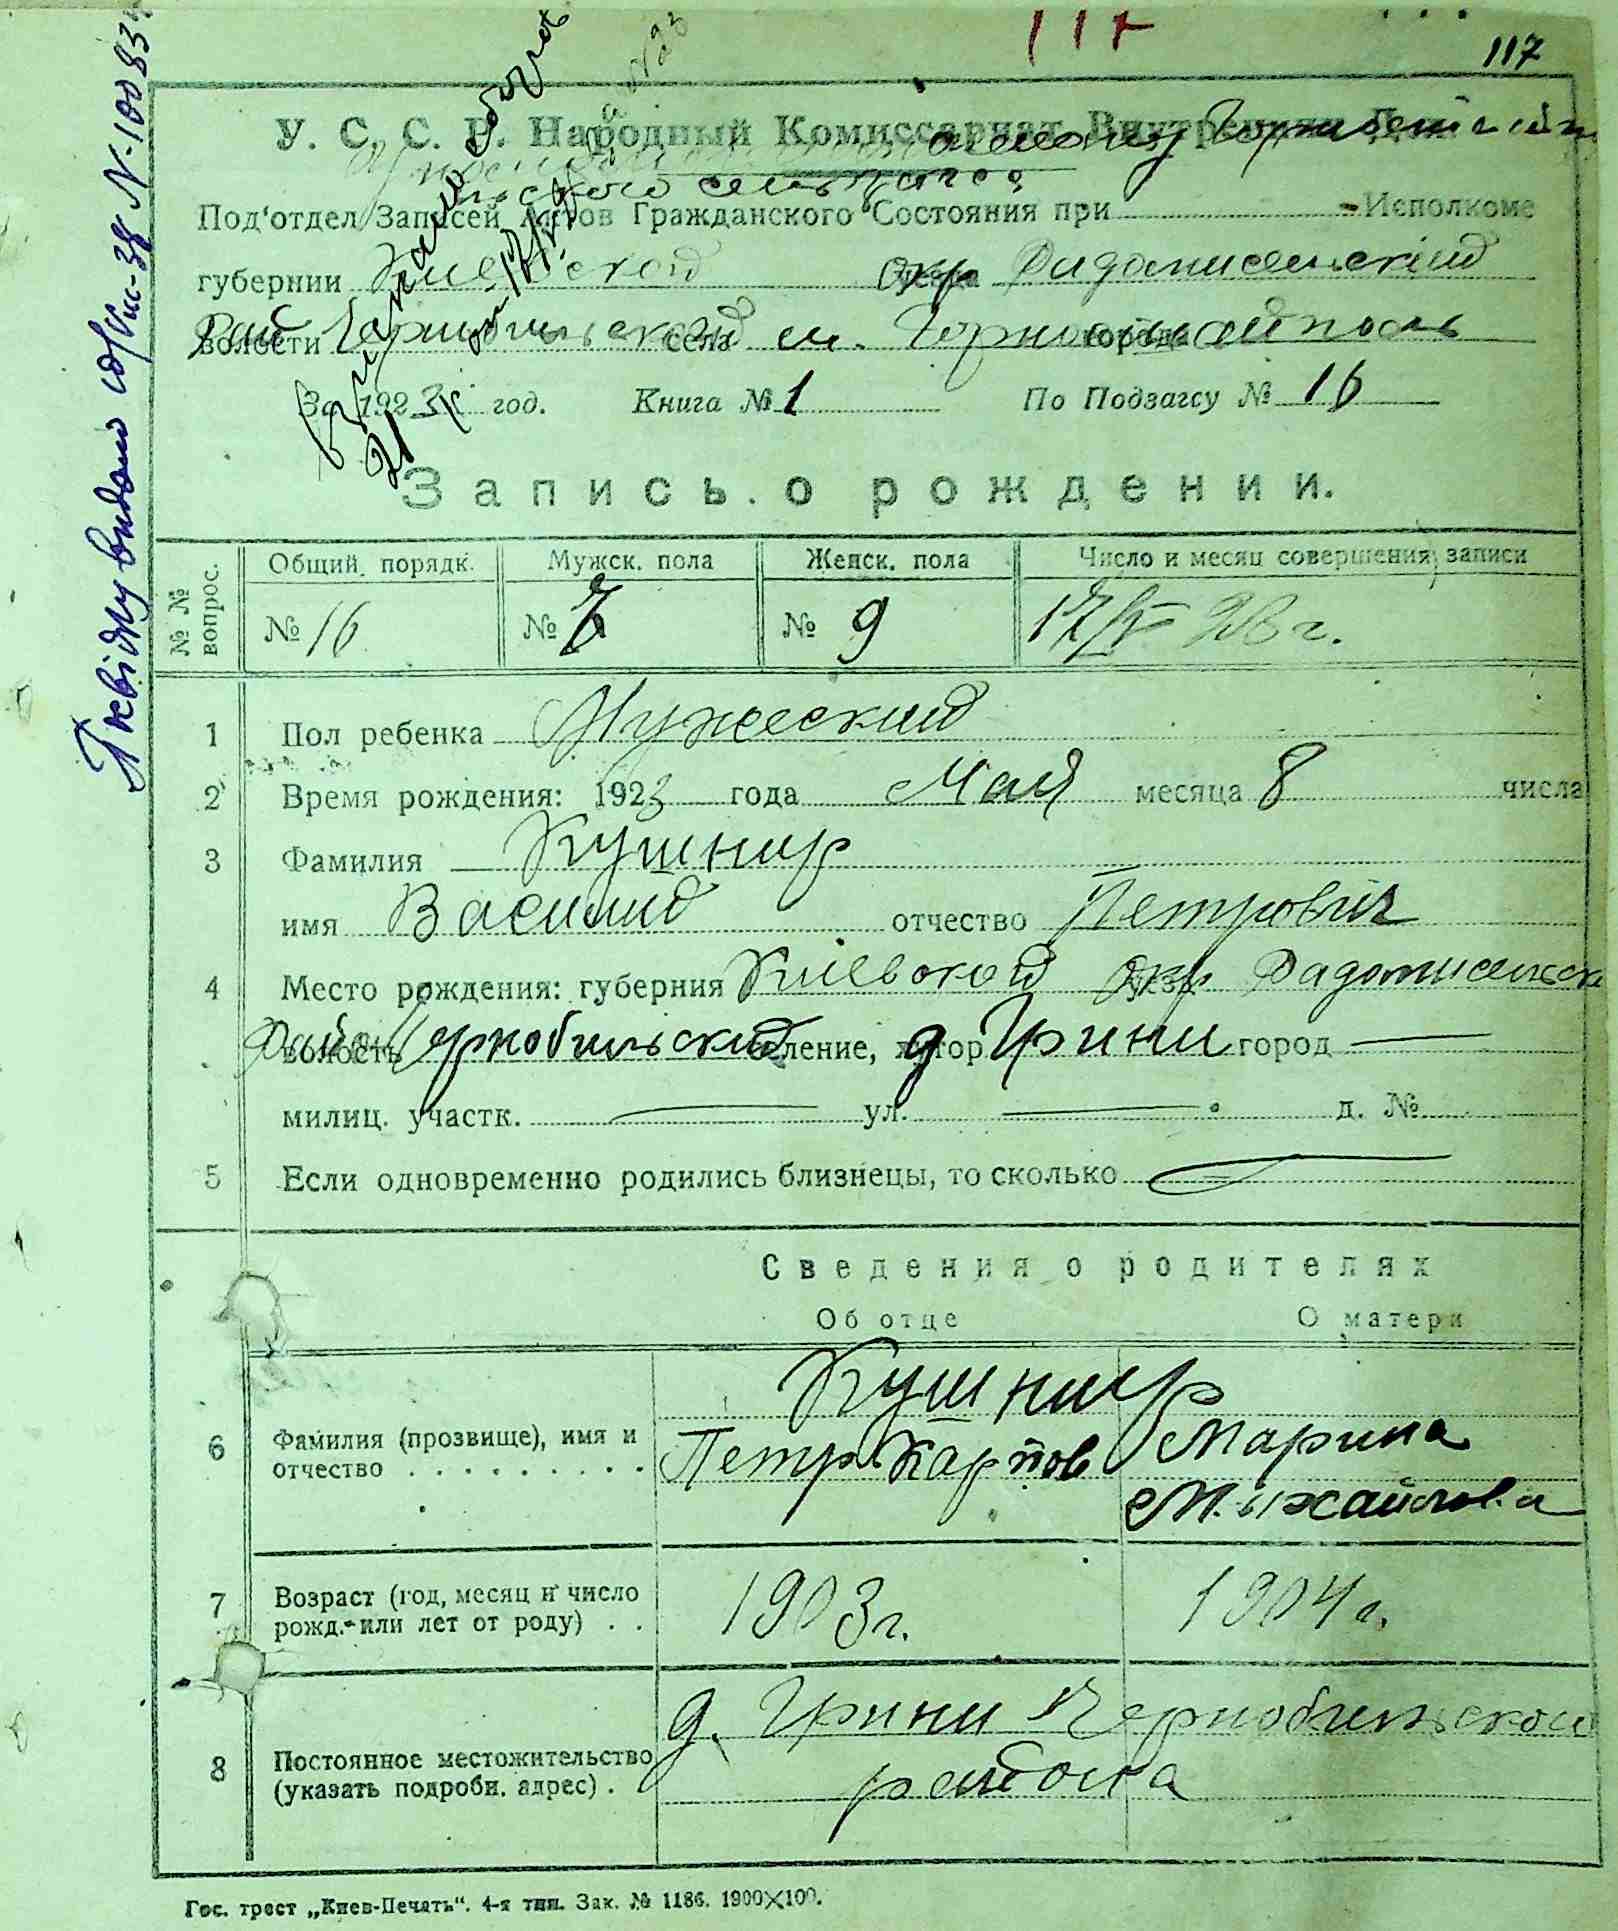 117
117
У. С. С. Р. Народный Комиссариат Внутренних Дел
Под'отдел Записей Актов Гражданского Состояния при - Исполкоме
губернии Киевской окр Радомисельский
волости Рай Чернобыльский села м. Чорнобыль город
За 1923 год. Книга № 1 По Подзагсу № 16
Запись о рождении.
№ № вопрос. Общий порядк. Мужск. пола Женск. пола Число и месяц совершения записи
№ 16 № 7 № 9 17/V 23 г.
1 Пол ребенка Мужеский
2 Время рождения: 1923 года Мая месяца 8 числа
3 Фамилия Кушнир
имя Василий отчество Петрович
4 Место рождения: губерния Киевской окр Радомисельск
волость Район Чернобильский селение, хутор д Грини город —
милиц. участк. — ул. — д. №
5 Если одновременно родились близнецы, то сколько —
Сведения о родителях
Об отце О матери
Кушнир
6 Фамилия (прозвище), имя и отчество Петр Карпов Марина Михайлова
7 Возраст (год, месяц и число рожд. или лет от роду) . . 1903 г. 1904 г.
8 Постоянное местожительство (указать подробн. адрес) . д. Грини Чернобильского района
Гос. трест „Киев-Печать“. 4-я тип. Зак. № 1186. 1900×100.